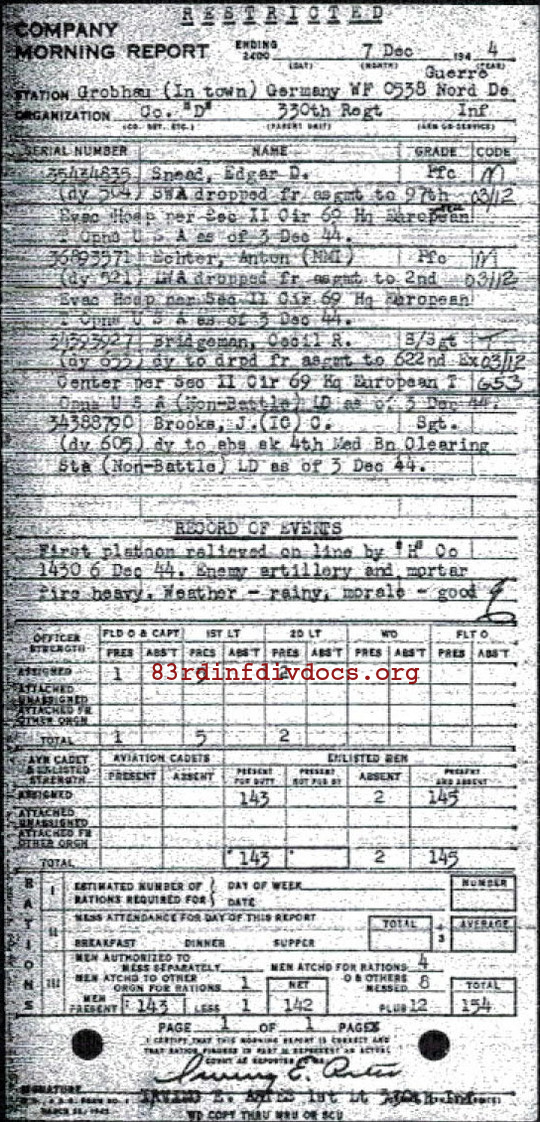 RESTRICTED
COMPANY
MORNING REPORT ENDING 2400 7 Dec 194 4
(DAY) (MONTH) (YEAR)
Guerre
STATION Grobhau (In town) Germany WF 0538 Nord De
ORGANIZATION Co. "D" 330th Regt Inf
(CO. DET. ETC.) (PARENT UNIT) (ARM OR SERVICE)
SERIAL NUMBER NAME GRADE CODE
35434835 Snead, Edgar D. Pfc M
(dy 504) SWA dropped fr asgmt to 97th 03/12
Evac Hosp per Sec II Cir 69 Hq European
T Opns U S A as of 3 Dec 44.
36893571 Echter, Anton (NMI) Pfc M
(dy 521) LWA dropped fr asgmt to 2nd 03/12
Evac Hosp per Sec II Cir 69 Hq European
T Opns U S A as of 3 Dec 44.
34393927 Bridgeman, Cecil R. S/Sgt T
(dy 653) dy to drpd fr asgmt to 622nd Ex 03/12
Center per Sec II Cir 69 Hq European T 653
Opns U S A (Non-Battle) LD as of 3 Dec 44.
34388790 Brooks, J.(IO) C. Sgt.
(dy 605) dy to abs sk 4th Med Bn Clearing
Sta (Non-Battle) LD as of 3 Dec 44.
RECORD OF EVENTS
First platoon relieved on line by "H" Co
1430 6 Dec 44. Enemy artillery and mortar
fire heavy. Weather - rainy, morale - good
OFFICER STRENGTH FLD O & CAPT 1ST LT 2D LT WO FLT O
PRES ABS'T PRES ABS'T PRES ABS'T PRES ABS'T PRES ABS'T
ASSIGNED 1 5 2
83rdinfdivdocs.org
ATTACHED UNASSIGNED
ATTACHED FR OTHER ORGN
TOTAL 1 5 2
AVN CADET & ENLISTED STRENGTH AVIATION CADETS ENLISTED MEN
PRESENT ABSENT PRESENT FOR DUTY PRESENT NOT FOR DY ABSENT PRESENT AND ABSENT
ASSIGNED 143 2 145
ATTACHED UNASSIGNED
ATTACHED FR OTHER ORGN
TOTAL 143 2 145
RATIONS
I ESTIMATED NUMBER OF RATIONS REQUIRED FOR DAY OF WEEK DATE NUMBER
II MESS ATTENDANCE FOR DAY OF THIS REPORT TOTAL ÷ 3 AVERAGE
BREAKFAST DINNER SUPPER
III MEN AUTHORIZED TO MESS SEPARATELY MEN ATCHD FOR RATIONS 4
MEN ATCHD TO OTHER ORGN FOR RATIONS 1 NET O & OTHERS MESSED 8 TOTAL
MEN PRESENT 143 LESS 1 142 PLUS 12 154
PAGE 1 OF 1 PAGES
I CERTIFY THAT THIS MORNING REPORT IS CORRECT AND
THAT RATION FIGURES IN PART III REPRESENT AN ACTUAL
COUNT AS REPORTED TO ME
SIGNATURE
1st Lt 330th Inf
WD COPY THRU MRU OR SCU